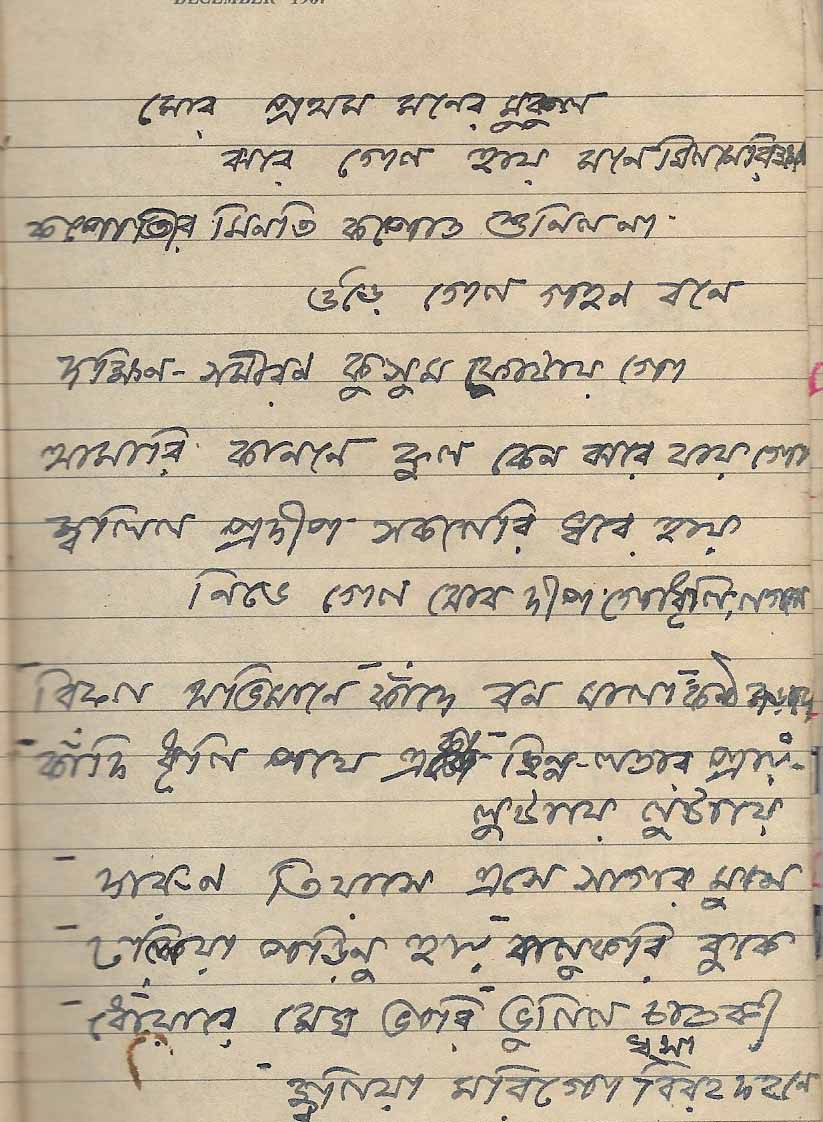 DECEMBER 196
মোর প্রথম মনের মুকুল
ঝরে গেল হায় মনে মিলনেরি
কপোতীর মিনতি কপোত শুনিল না
উড়ে গেল গহন বনে
দক্ষিন-সমীরন কুসুম ফোটায় গো
আমারি কাননে ফুল কেন ঝরে যায় গো
জ্বলিল প্রদীপ সকলেরি ঘরে হায়
নিভে গেল মোর দীপ গোধূলি লগনে
বিফল অভিমানে কাঁদে বন মালা কণ্ঠ
কাঁদি ধূলি পথে একা ছিন্ন-লতার প্রায়-
লুটায়ে লুটায়ে
দারুন তিয়াসে এসে সাগর মুখে
ঢলিয়া পড়িনু হায় বালুকারি বুকে
ধোঁয়ারে মেঘ ভাবি ভুলিল চাতকী
জ্বলিয়া মরি গো বিরহ দহনে